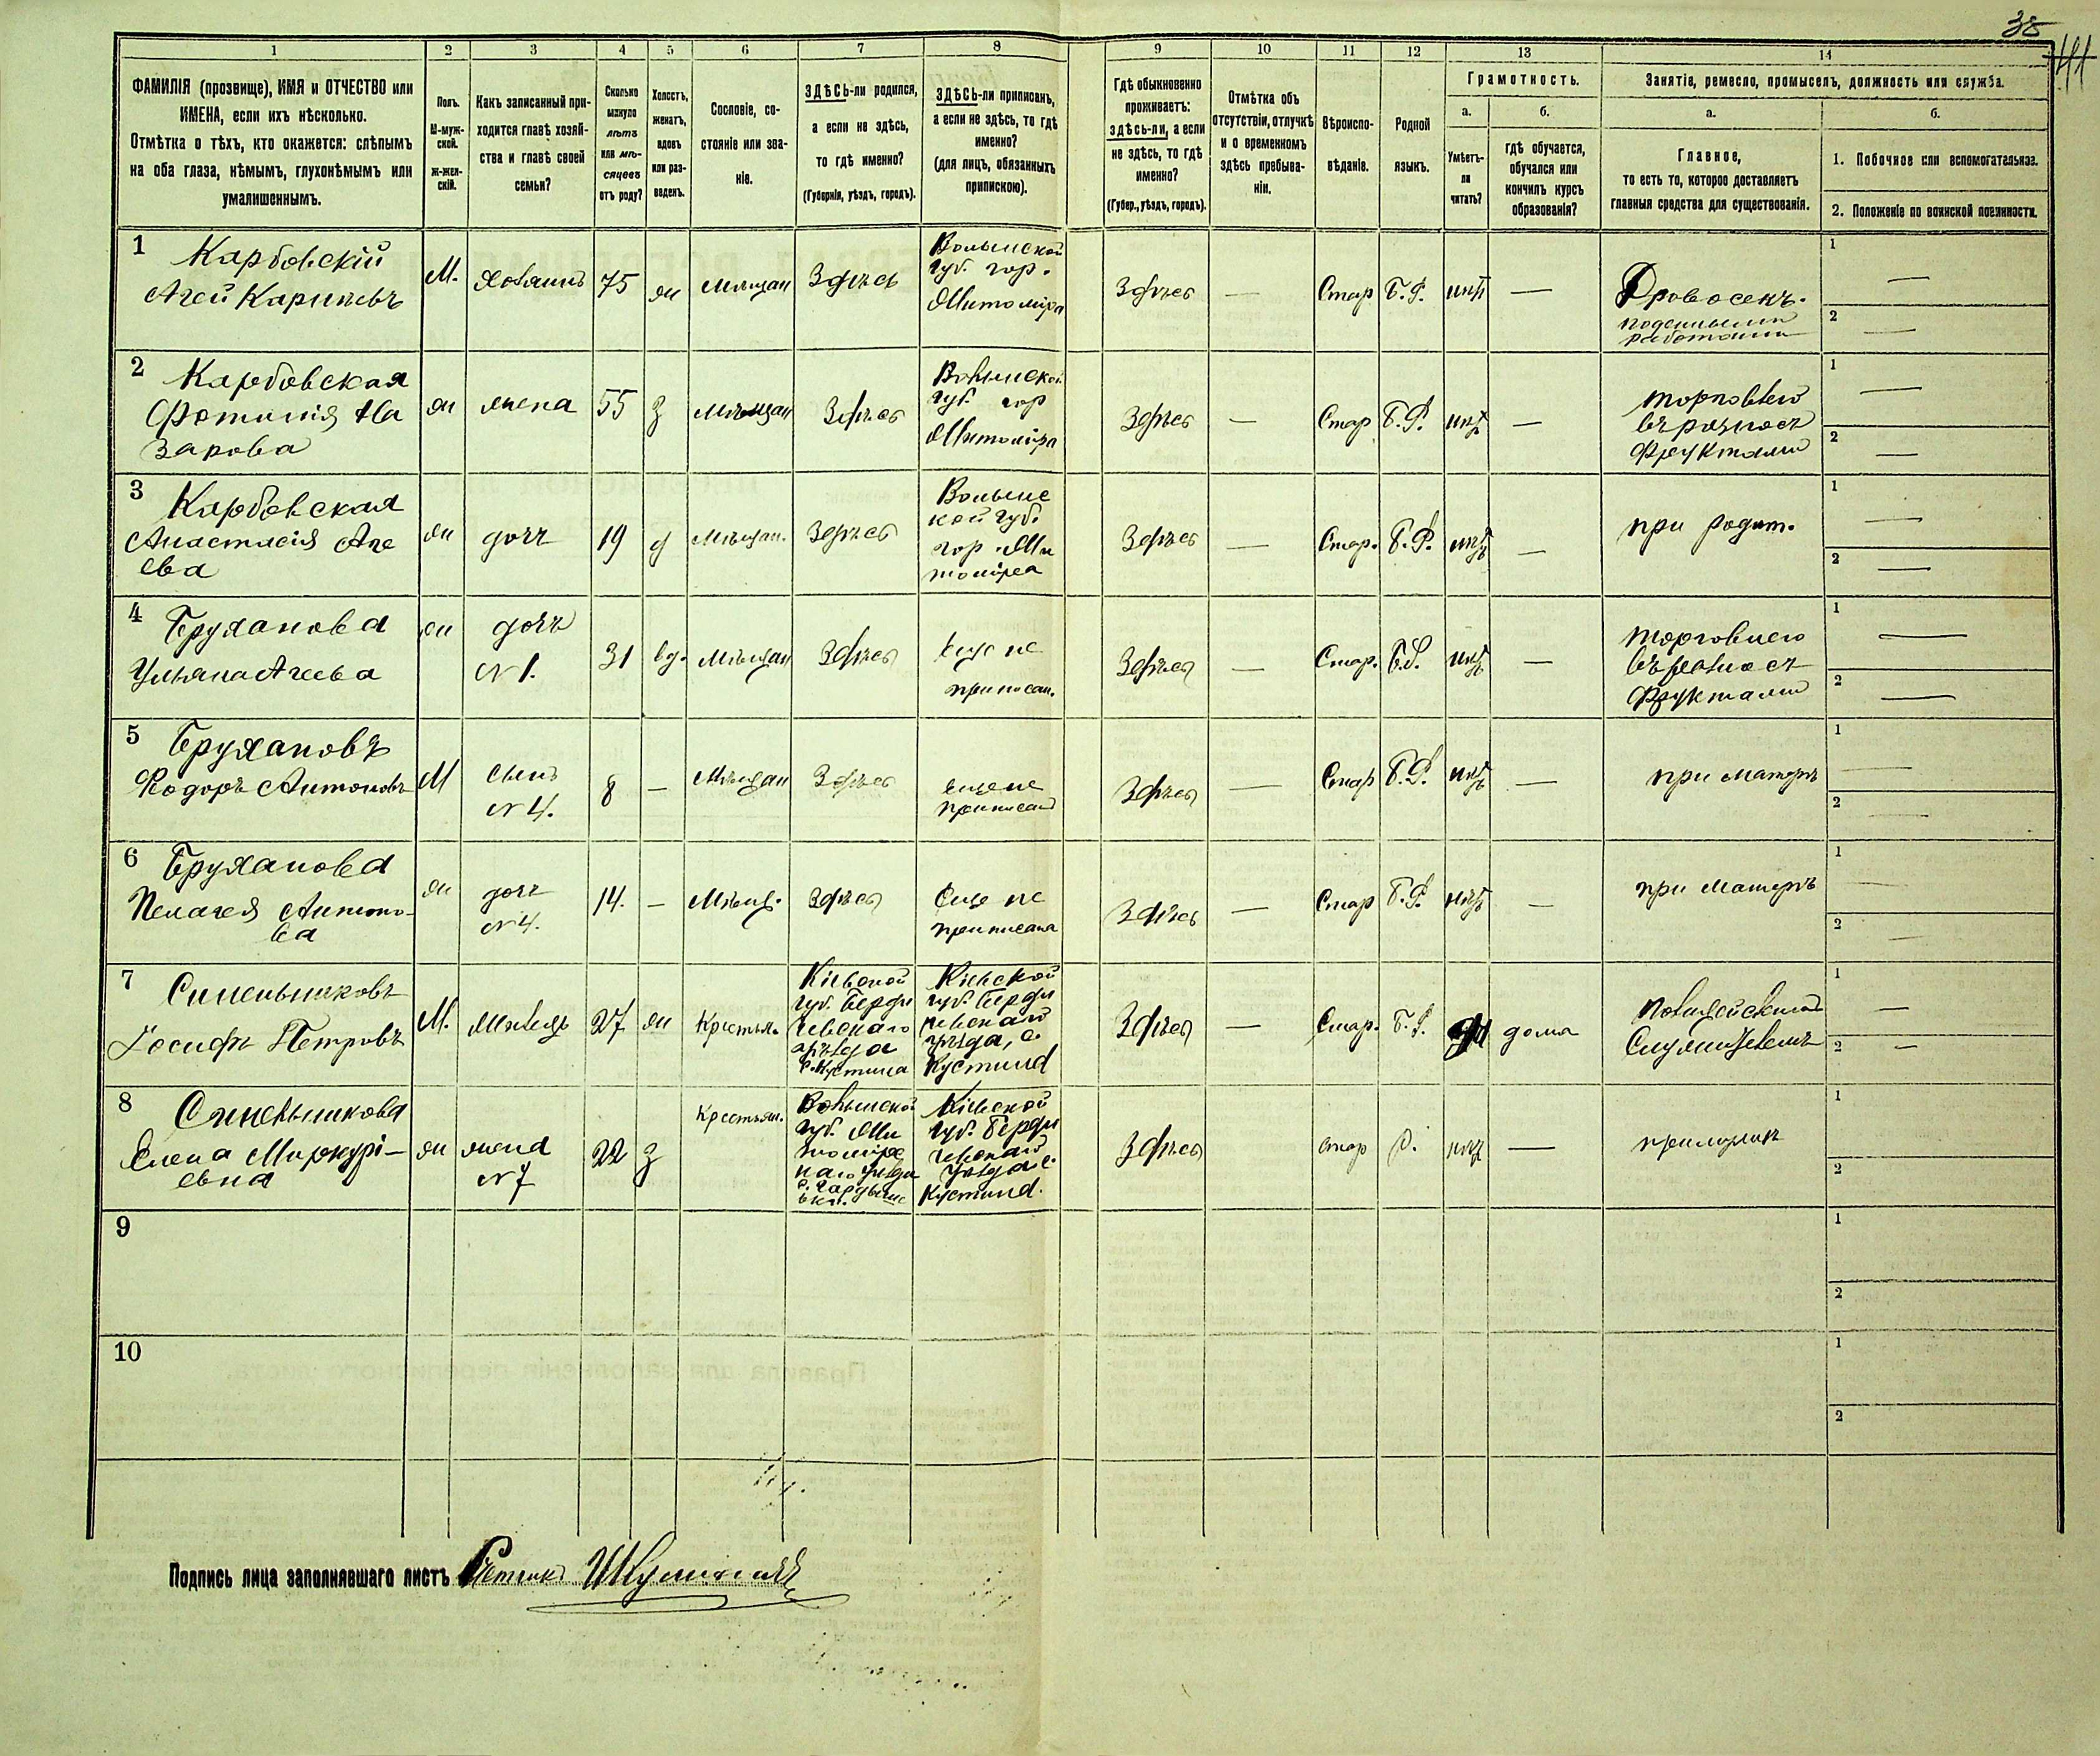 38
41
1 2 3 4 5 6 7 8 9 10 11 12 13 14
ФАМИЛІЯ (прозвище), ИМЯ и ОТЧЕСТВО или
ИМЕНА, если ихъ нѣсколько.
Отмѣтка о тѣхъ, кто окажется: слѣпымъ
на оба глаза, нѣмымъ, глухонѣмымъ или
умалишеннымъ.
Полъ.
М-муж-
ской.
Ж-жен-
скій.
Какъ записанный при-
ходится главѣ хозяй-
ства и главѣ своей
семьи?
Сколько
минуло
лѣтъ
или мѣ-
сяцевъ
отъ роду?
Холостъ,
женатъ,
вдовъ
или раз-
веденъ.
Сословіе, со-
стояніе или зва-
ніе.
ЗДѢСЬ-ли родился,
а если не здѣсь,
то гдѣ именно?
(Губернія, уѣздъ, городъ).
ЗДѢСЬ-ли приписанъ,
а если не здѣсь, то гдѣ
именно?
(для лицъ, обязанныхъ
припискою).
Гдѣ обыкновенно
проживаетъ:
здѣсь-ли, а если
не здѣсь, то гдѣ
именно?
(Губер., уѣздъ, городъ).
Отмѣтка объ
отсутствіи, отлучкѣ
и о временномъ
здѣсь пребыва-
ніи.
Вѣроиспо-
вѣданіе.
Родной
языкъ.
Грамотность.
а.
Умѣетъ-
ли
читать?
б.
гдѣ обучается,
обучался или
кончилъ курсъ
образованія?
Занятіе, ремесло, промыселъ, должность или служба.
а.
Главное,
то есть то, которое доставляетъ
главныя средства для существованія.
б.
1. Побочное или вспомогательное.
2. Положеніе по воинской повинности.
1 Карбовскій
Агей Карповъ
М. хозяинъ 75 ж мѣщан Здѣсь
Волынской
губ. гор.
Житоміра
Здѣсь — Стар Б.Р. нѣт —
Дровосекъ.
1 —
2 —
2 Карбовская
Фотинія На
зарова
ж жена 55 з мѣщан Здѣсь
Волынской
губ. гор
Житоміра
Здѣсь — Стар Б.Р. нѣт —
торговлею
въ разнос
фруктами
1 —
2 —
3 Карбовская
Анастасія Аге
ева
ж дочь 19 д мѣщан. Здѣсь
Волынс
кой губ.
гор. Жи
томіра
Здѣсь — Стар. Б.Р. нѣт —
при родит.
1 —
2 —
4 Бруханова
Ульяна Агеева
ж дочь
№ 1.
31 вд. мѣщан Здѣсь
еще не
приписан.
Здѣсь — Стар. Б.Р. нѣт —
торговлею
въ разнос
фруктами
1 —
2 —
5 Брухановъ
Федоръ Антоновъ
М сынъ
№ 4.
8 — мѣщан Здѣсь
еще не
приписан
Здѣсь — Стар Б.Р. нѣт —
при матерѣ
1 —
2 —
6 Бруханова
Пелагея Антоно-
ва
ж дочь
№ 4.
14. — мѣщ. Здѣсь
Еще не
приписана
Здѣсь — Стар Б.Р. нѣт —
при матерѣ
1 —
2 —
7 Синельниковъ
Іосифъ Петровъ
М. жилецъ 27 ж Крестьян.
Кіевской
губ. Берди
чевскаго
уѣзда
Кіевской
губ. Берди
чевскаго
уѣзда, с.
Здѣсь — Стар. Б.Р. да дома
Полицейским
Служителемъ
1 —
2 —
8 Синельникова
Елена Меркурі-
евна
ж жена
№ 7
22 з Крестьян.
Волынской
губ. Жи
томірс
каго уѣзда
Кіевской
губ. Берди
чевскаго
уѣзда с.
Здѣсь стар Р. нѣт —
при мужѣ
1
2
9
1
2
10
1
2
Подпись лица заполнявшаго листъ